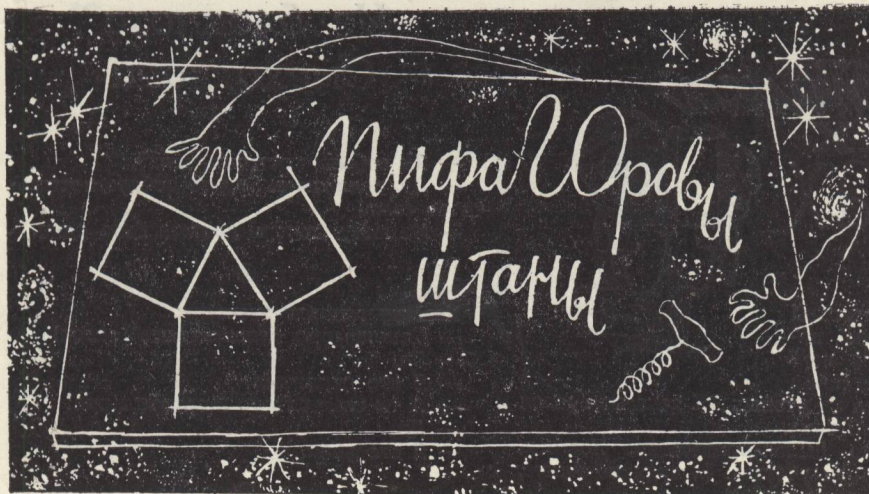 ПифаЮровы
штаны